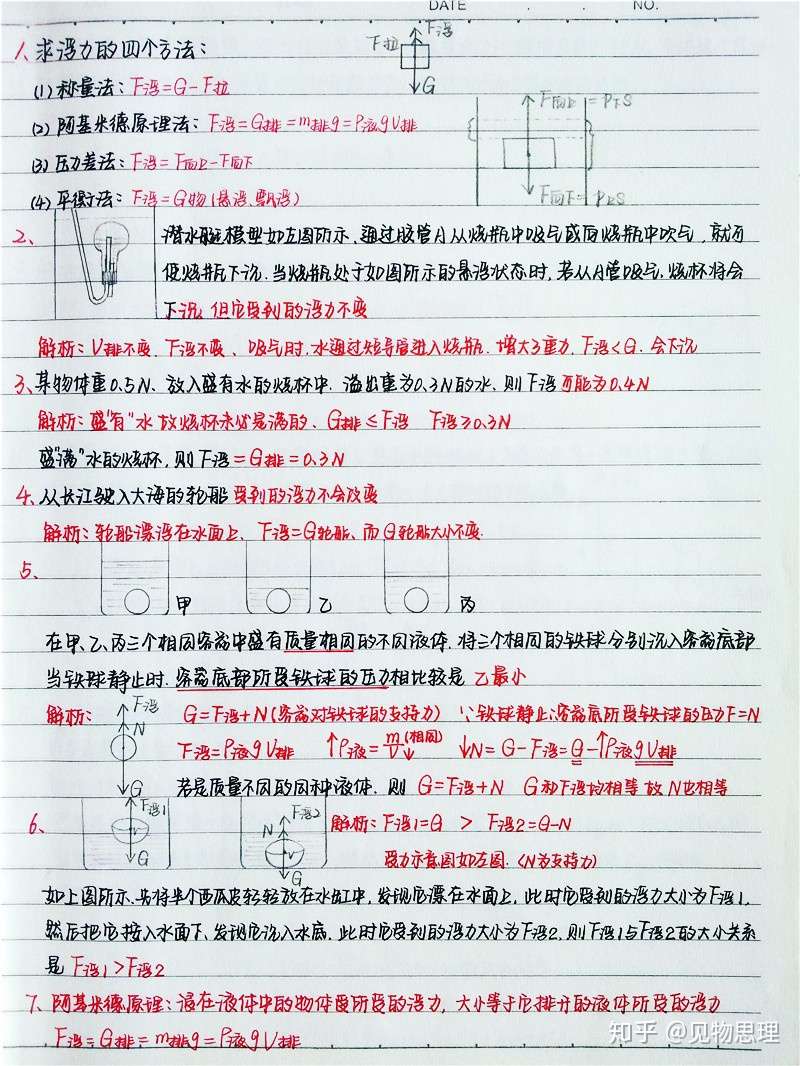 DATE . . NO.
1、求浮力的四个方法：
F浮
F拉
G
(1) 称量法：F浮=G-F拉
(2) 阿基米德原理法：F浮=G排=m排g=ρ液gV排
(3) 压力差法：F浮=F向上-F向下
(4) 平衡法：F浮=G物(悬浮、飘浮)
F向上=P下S
F向下=P上S
2、
潜水艇模型如左图所示，通过胶管A从烧瓶中吸气或向烧瓶中吹气，就可
使烧瓶下沉.当烧瓶处于如图所示的悬浮状态时，若从A管吸气，烧杯将会
下沉，但它受到的浮力不变
解析：V排不变、F浮不变、吸气时，水通过短导管进入烧瓶，增大了重力，F浮<G.会下沉
3、某物体重0.5N、放入盛有水的烧杯中，溢出重为0.3N的水，则F浮可能为0.4N
解析：盛"有"水故烧杯未必是满的、G排≤F浮 F浮≥0.3N
盛"满"水的烧杯，则F浮=G排=0.3N
4、从长江驶入大海的轮船受到的浮力不会改变
解析：轮船漂浮在水面上、F浮=G轮船、而G轮船大小不变.
5、
甲 乙 丙
在甲、乙、丙三个相同容器中盛有质量相同的不同液体，将三个相同的铁球分别沉入容器底部
当铁球静止时，容器底部所受铁球的压力相比较是 乙最小
解析：
F浮
N
G
G=F浮+N(容器对铁球的支持力) ∵铁球静止∴容器底所受铁球的压力F=N
F浮=ρ液gV排 ↑ρ液=m(相同)/V↓ ↓N=G-F浮=G-↑ρ液gV排
若是质量不同的同种液体，则 G=F浮+N G和F浮均相等 故N也相等
6、
F浮1
V
G
F浮2
N
V
G
解析：F浮1=G > F浮2=G-N
受力示意图如左图.(N为支持力)
如上图所示、先将半个西瓜皮轻轻放在水缸中，发现它漂在水面上，此时它受到的浮力大小为F浮1，
然后把它按入水面下、发现它沉入水底，此时它受到的浮力大小为F浮2，则F浮1与F浮2的大小关系
是 F浮1>F浮2
7、阿基米德原理：浸在液体中的物体受所受的浮力，大小等于它排开的液体所受的浮力
F浮=G排=m排g=ρ液gV排
知乎 @见物思理